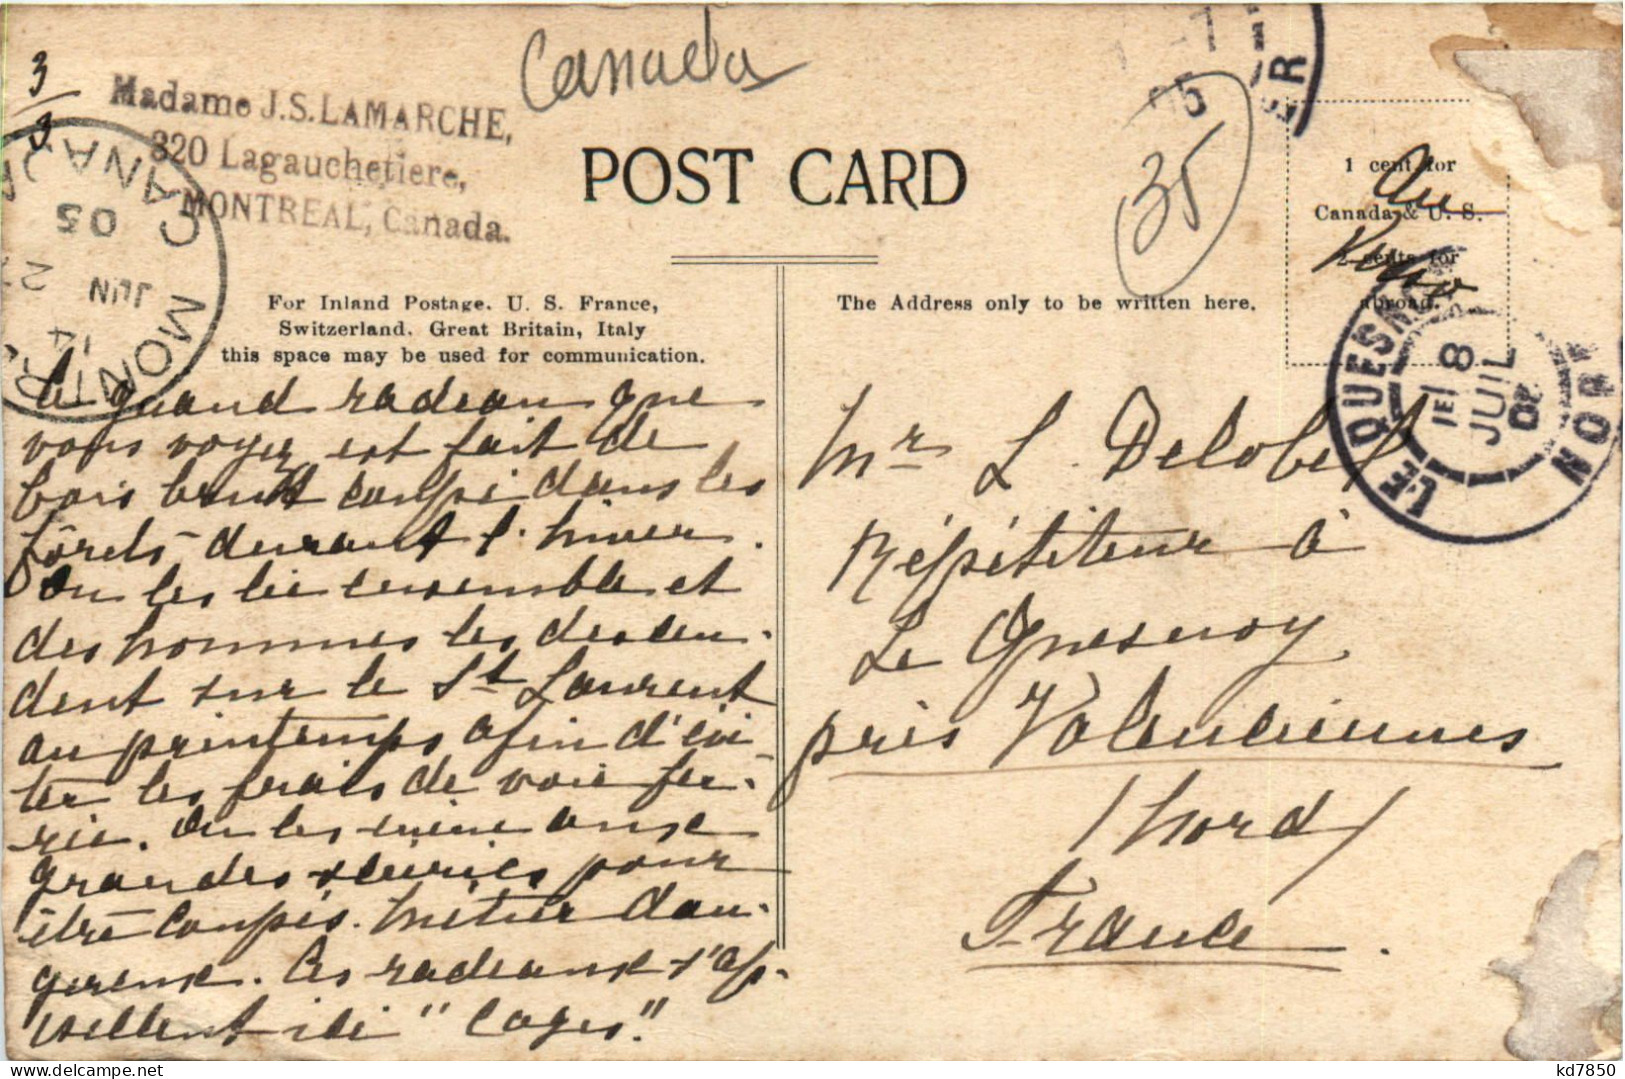 Canada
3/3
Madame J.S. LAMARCHE,
320 Lagauchetiere,
MONTREAL, Canada.
CANADA
MONTR
14
JUN
05
POST CARD
35
05
ER
1 cent for
Canada & U. S.
2 cents for
abroad.
Au
Verso
LE QUESNOY
8
JUIL
05
NORD
For Inland Postage. U. S. France,
Switzerland. Great Britain, Italy
this space may be used for communication.
The Address only to be written here.
Le grand radeau que
vous voyez est fait de
bois brut coupé dans les
forêts durant l'hiver.
On les lie ensemble et
des hommes les descen-
dent sur le St Laurent
au printemps afin d'évi-
ter les frais de voie fer-
rie. On les mène aux
grandes scieries pour
être coupés. Métier dan-
gereux. Ces radeaux s'ap-
pellent ici "Cages".
Mr L. Delobel
Répétiteur à
Le Quesnoy
près Valenciennes
(Nord)
France.
kd7850